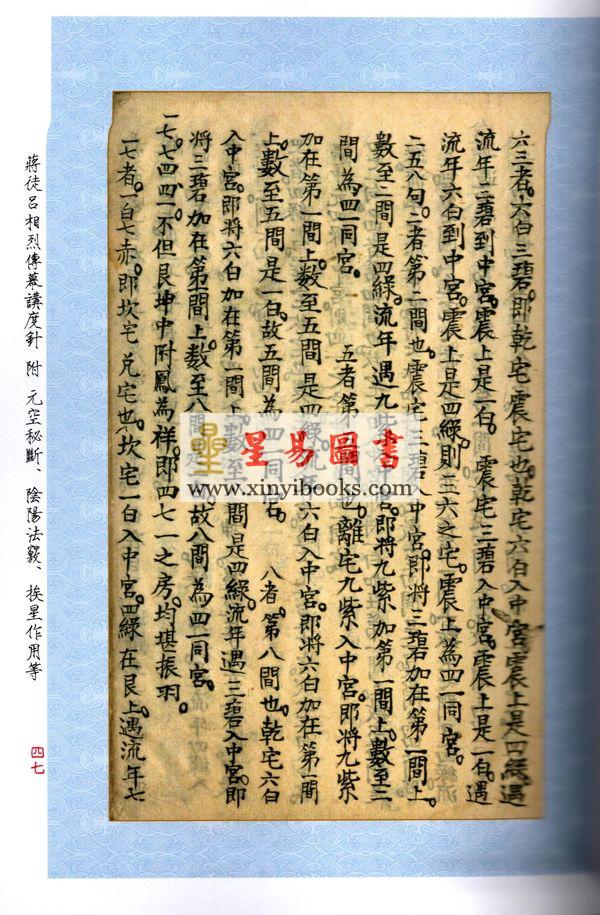 六三者。六白三碧。即乾宅震宅也。乾宅六白入中宮。震上是四綠。遇
流年三碧到中宮。震上是一白。 震宅三碧入中宮。震上是一白。遇
流年六白到中宮。震上是四綠。則三六之宅。震上為四一同宮。
二五八句。二者第二間也。震宅三碧入中宮。即將三碧加在第一間上。
數至二間是四綠。流年遇九紫入中宮。即將九紫加第一間上。數至二
間為四一同宮。 五者第五間也。離宅九紫入中宮。即將九紫
加在第一間上。數至五間是四綠。流年六白入中宮。即將六白加在第一間
上。數至五間是一白。故五間為四一同宮。 八者第八間也。乾宅六白
入中宮。即將六白加在第一間上。數至八間是四綠。流年遇三碧入中宮。即
將三碧加在第一間上。數至八間是一白。故八間為四一同宮。
一七七四四一不但艮坤中附鳳為祥。即四七一之房。均堪振羽。
一七者。一白七赤。即坎宅兌宅也。坎宅一白入中宮。四綠在艮上。遇流年七
蔣徒呂相烈傳幕講度針 附 元空秘斷、陰陽法竅、挨星作用等
四七
星易圖書
www.xinyibooks.com